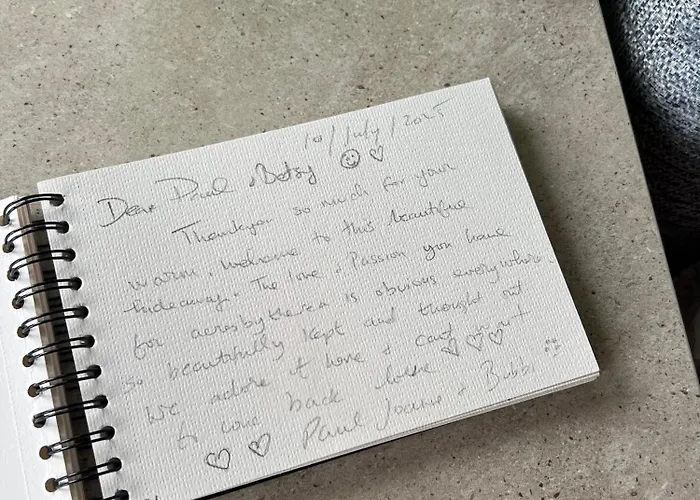 10/July/2025
Dear Paul & Betsy ☺ ♡
Thankyou so much for your
warm welcome to this beautiful
hideaway. The love & Passion you have
for acresbythesea is obvious everywhere
so beautifully kept and thought out
We adore it here & cant wait
to come back ♡♡♡
♡ ♡ Paul Joanne & Bubbi